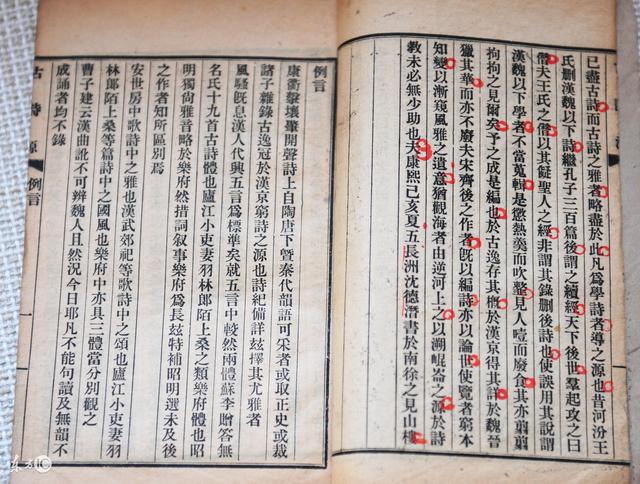 已盡古詩而古詩之雅者略盡於此凡爲學詩者導之源也昔河汾王
氏刪漢魏以下詩繼孔子三百篇後謂之續經天下後世羣起攻之曰
僭夫王氏之僭以其儗聖人之經非謂其錄刪後詩也使誤用其說謂
漢魏以下學者不當蒐輯是懲熱羹而吹虀見人噎而廢食其亦翦翦
拘拘之見爾矣予之成是編也於古逸存其槪於漢京得其詳於魏晉
獵其華而亦不廢夫宋齊後之作者旣以編詩亦以論世使覽者窮本
知變以漸窺風雅之遺意猶觀海者由逆河上之以溯崐崙之源於詩
教未必無少助也夫康熙己亥夏五長洲沈德潛書於南徐之見山樓
例言
康衢擊壤肇開聲詩上自陶唐下曁秦代韻語可采者或取正史或裁
諸子雜錄古逸冠於漢京窮詩之源也詩紀備詳茲擇其尤雅者
風騷旣息漢人代興五言爲標準矣就五言中較然兩體蘇李贈答無
名氏十九首古詩體也廬江小吏妻羽林郎陌上桑之類樂府體也昭
明獨尚雅音略於樂府然措詞敘事樂府爲長茲特補昭明選未及後
之作者知所區別焉
安世房中歌詩中之雅也漢武郊祀等歌詩中之頌也廬江小吏妻羽
林郎陌上桑等篇詩中之國風也樂府中亦具三體當分別觀之
曹子建云漢曲訛不可辨魏人且然況今日耶凡不能句讀及無韻不
成誦者均不錄
古詩源 例言 一